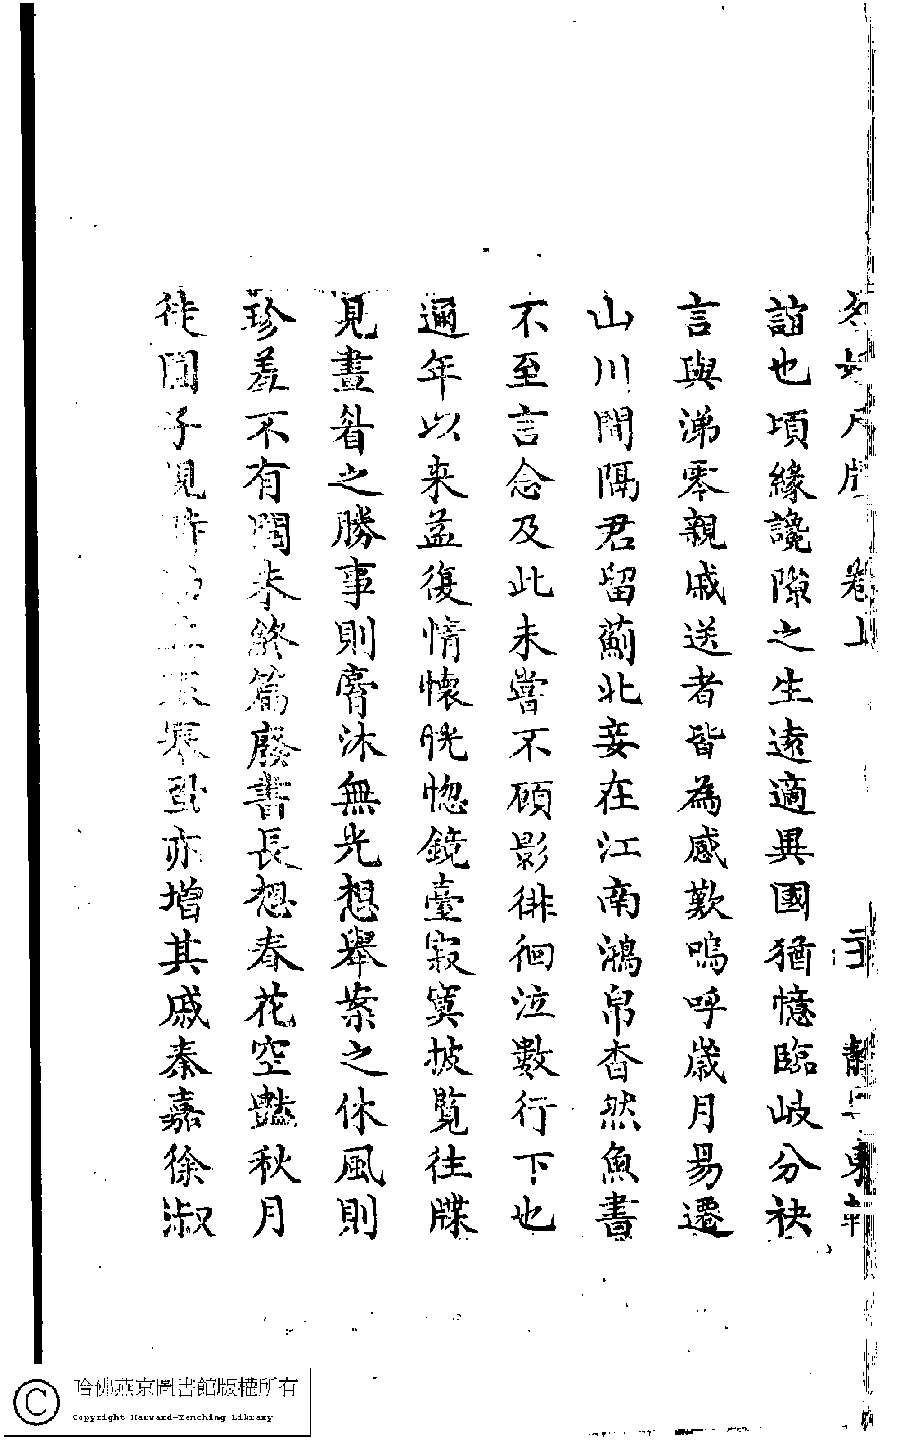 卷上
誼也頃緣讒隙之生遠適異國猶憶臨岐分袂
言與涕零親戚送者皆為感歎嗚呼歲月易遷
山川間隔君留薊北妾在江南鴻帛杳然魚書
不至言念及此未嘗不顧影徘徊泣數行下也
邇年以来益復情懷恍惚鏡臺寂寞披覧往牒
見畫眉之勝事則膏沐無光想舉案之休風則
珍羞不有閱未終篇廢書長想春花空豔秋月
徒圓子規
寒蛩亦增其戚秦嘉徐淑
哈佛燕京圖書館版權所有
Copyright Harvard-Yenching Library